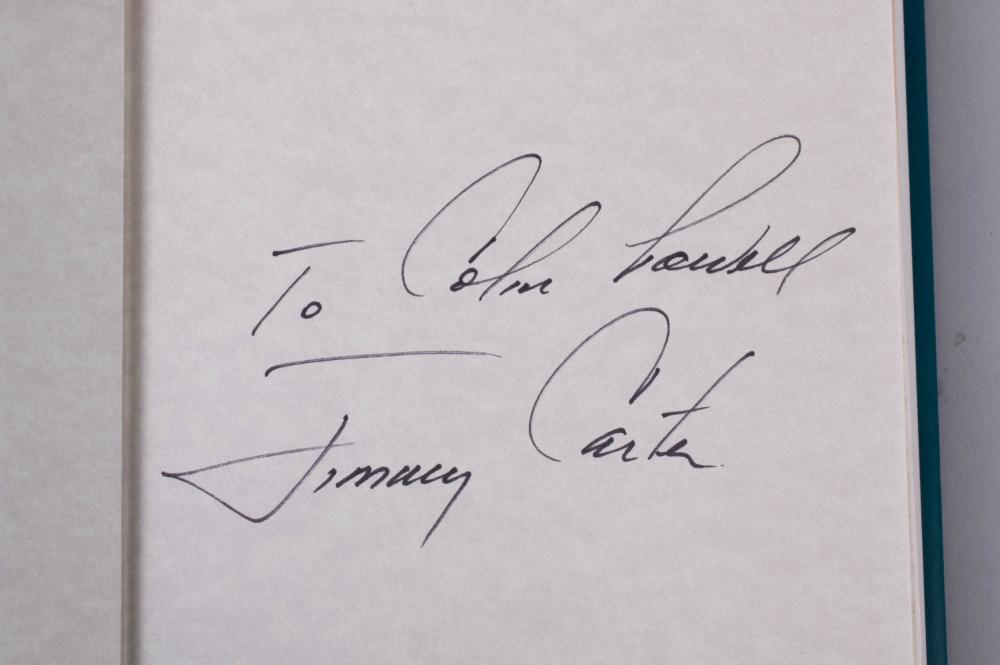 To Colin Powell
Jimmy Carter